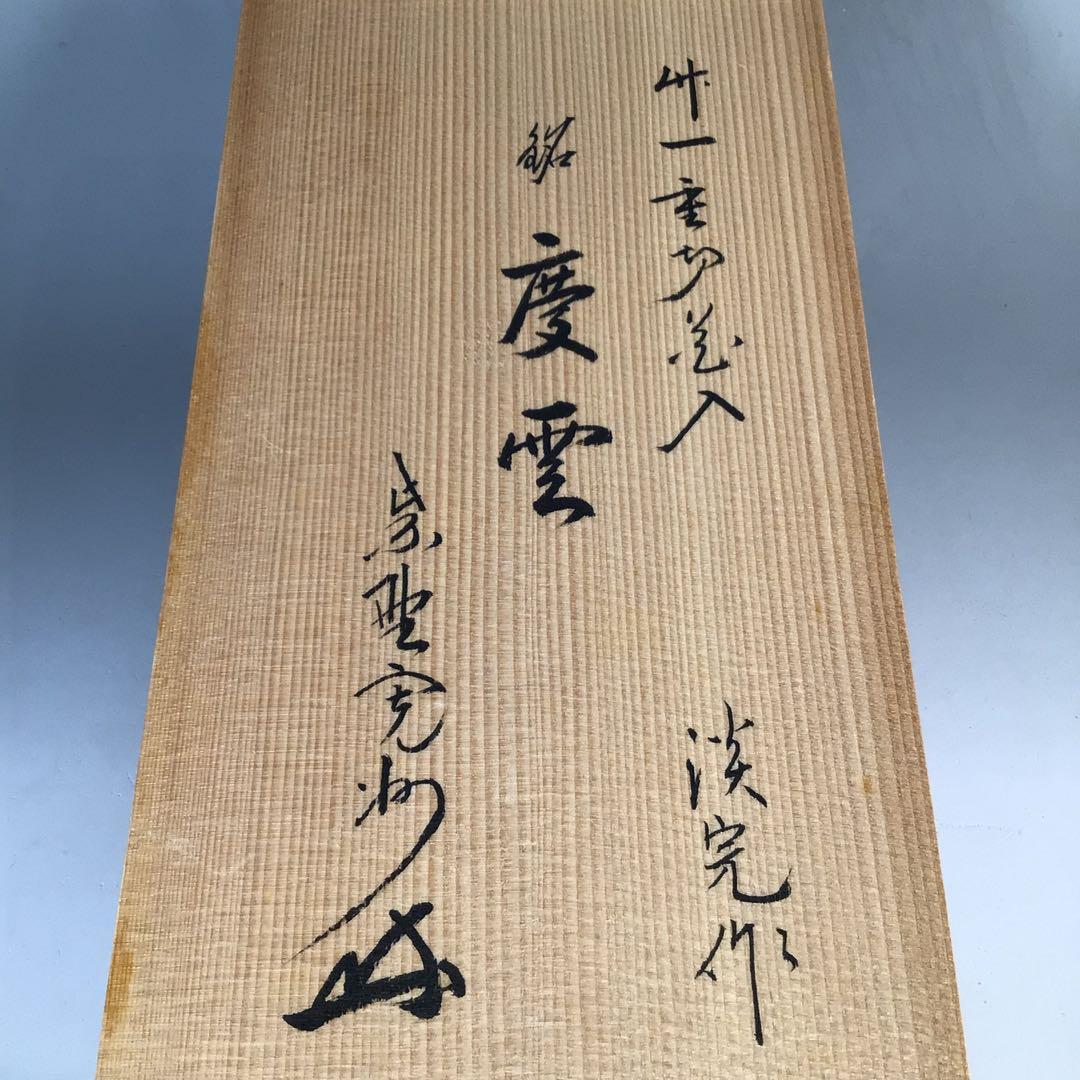 竹一重切花入
淡完作
銘 慶雲
紫野寛州